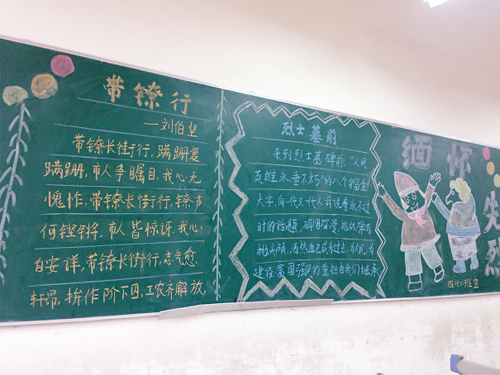 带镣行
—刘伯坚
带镣长街行,蹒跚复
蹒跚,市人争瞩目,我心无
愧怍.带镣长街行,镣声
何铿锵,市人皆惊讶,我心
自安详,带镣长街行,志气愈
轩昂,拚作阶下囚,工农齐解放
烈士墓前
来到烈士墓碑前,"人民
英雄永垂不朽"的八个镏金
大字,向一代又一代人前说着永不过
时的话题
抛头颅,洒热血已成过去,
建设富国强民的重担由我们继承
缅怀
先烈